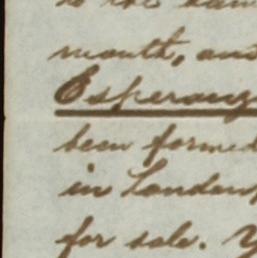 to the
mouth, and
Esperanz
been formed
in London,
for sale. Y